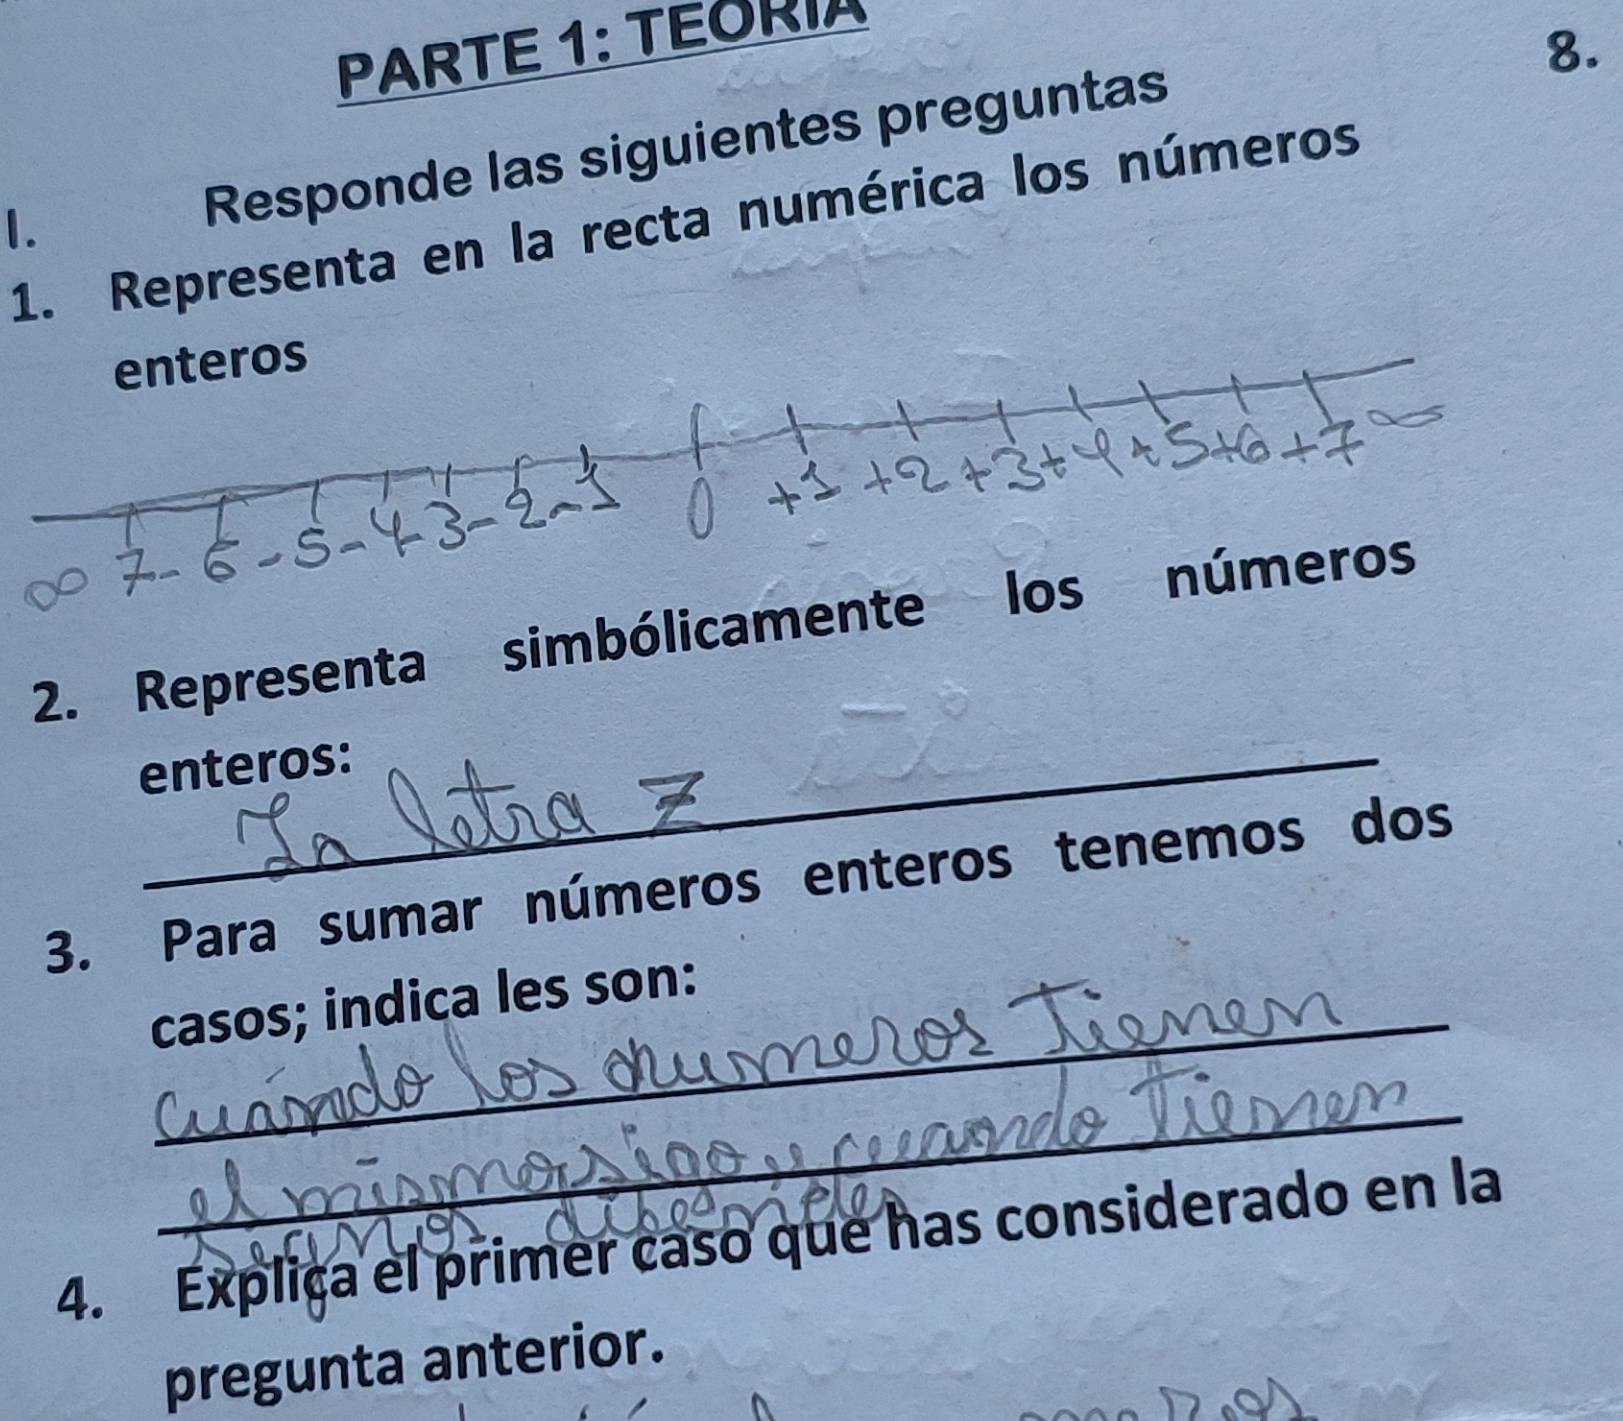 PARTE 1: TEORIA
8.
I. Responde las siguientes preguntas
1. Representa en la recta numérica los números
enteros
∞ 7 - 6 - 5 - 4 - 3 - 2 - 1 0 +1 +2 +3 +4 +5 +6 +7 ∞
2. Representa simbólicamente los números
enteros:
La letra Z
3. Para sumar números enteros tenemos dos
casos; indica les son:
Cuándo los numeros tienen
el mismo sigo y cuando tienen
signos
4. Explica el primer caso que has considerado en la
pregunta anterior.